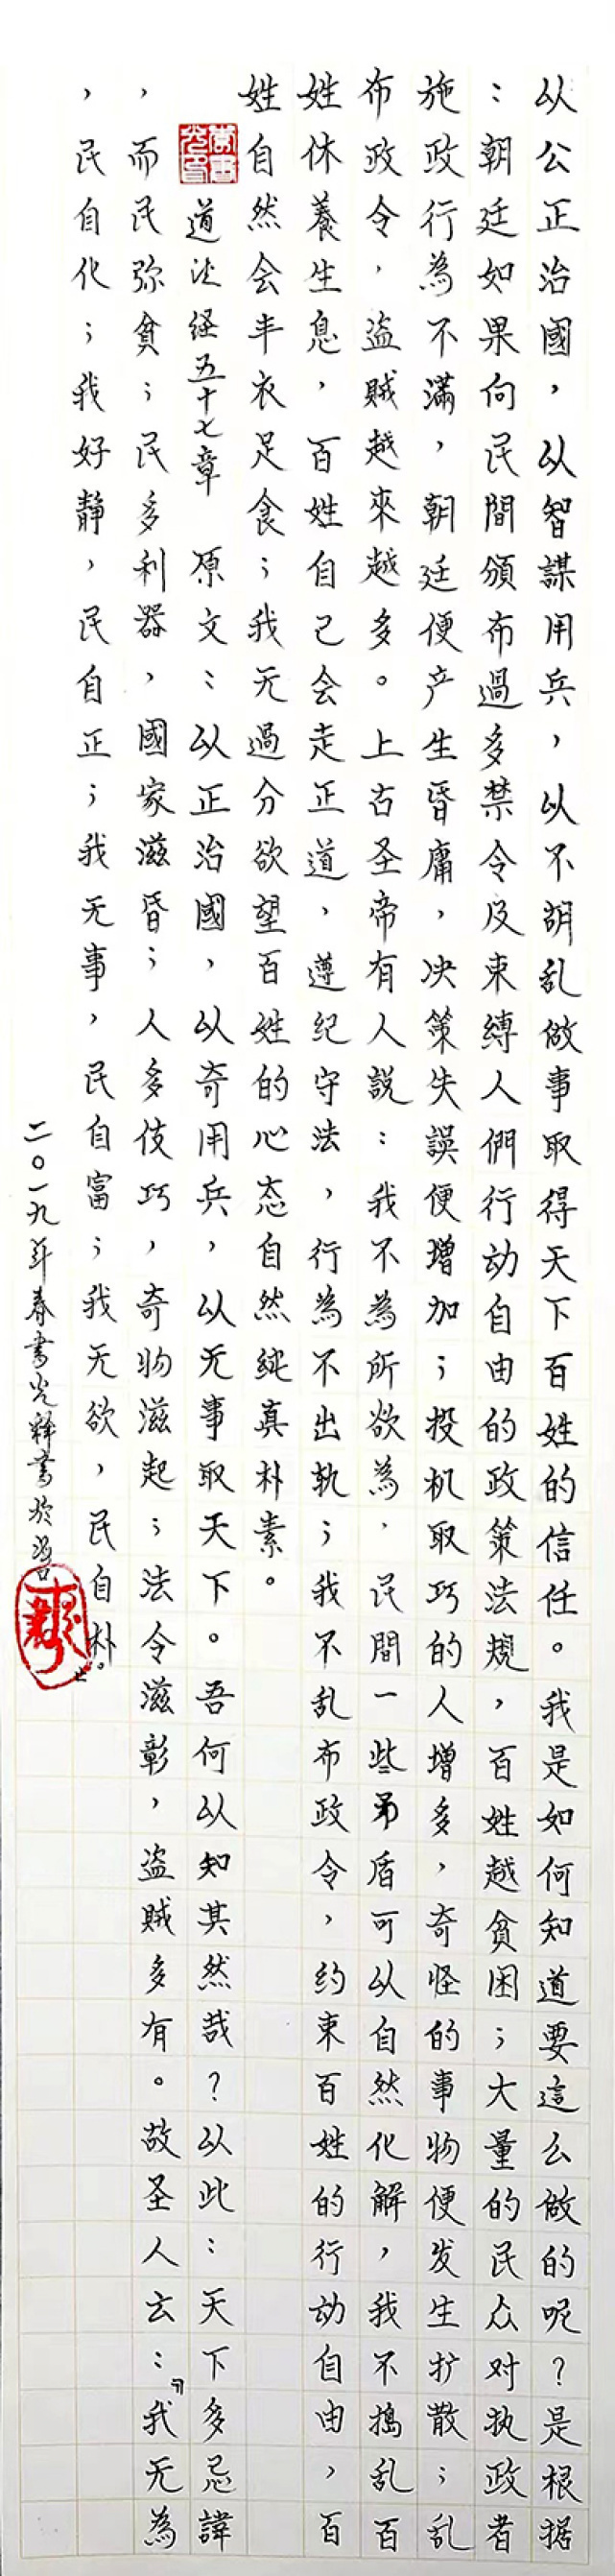 以公正治國，以智謀用兵，以不胡乱做事取得天下百姓的信任。我是如何知道要這么做的呢？是根据
：朝廷如果向民間頒布過多禁令及束縛人們行动自由的政策法規，百姓越貧困；大量的民众对执政者
施政行為不滿，朝廷便产生昏庸，决策失誤便增加；投机取巧的人增多，奇怪的事物便发生扩散；乱
布政令，盗賊越來越多。上古圣帝有人説：我不為所欲為，民間一些矛盾可以自然化解，我不搗乱百
姓休養生息，百姓自己会走正道，遵纪守法，行為不出軌；我不乱布政令，约束百姓的行动自由，百
姓自然会丰衣足食；我无過分欲望百姓的心态自然純真朴素。
道法经五十七章 原文：以正治國，以奇用兵，以无事取天下。吾何以知其然哉？以此：天下多忌諱
，而民弥貧；民多利器，國家滋昏；人多伎巧，奇物滋起；法令滋彰，盗賊多有。故圣人云：『我无為
，民自化；我好静，民自正；我无事，民自富；我无欲，民自朴。』
二〇一九年春書光释書於